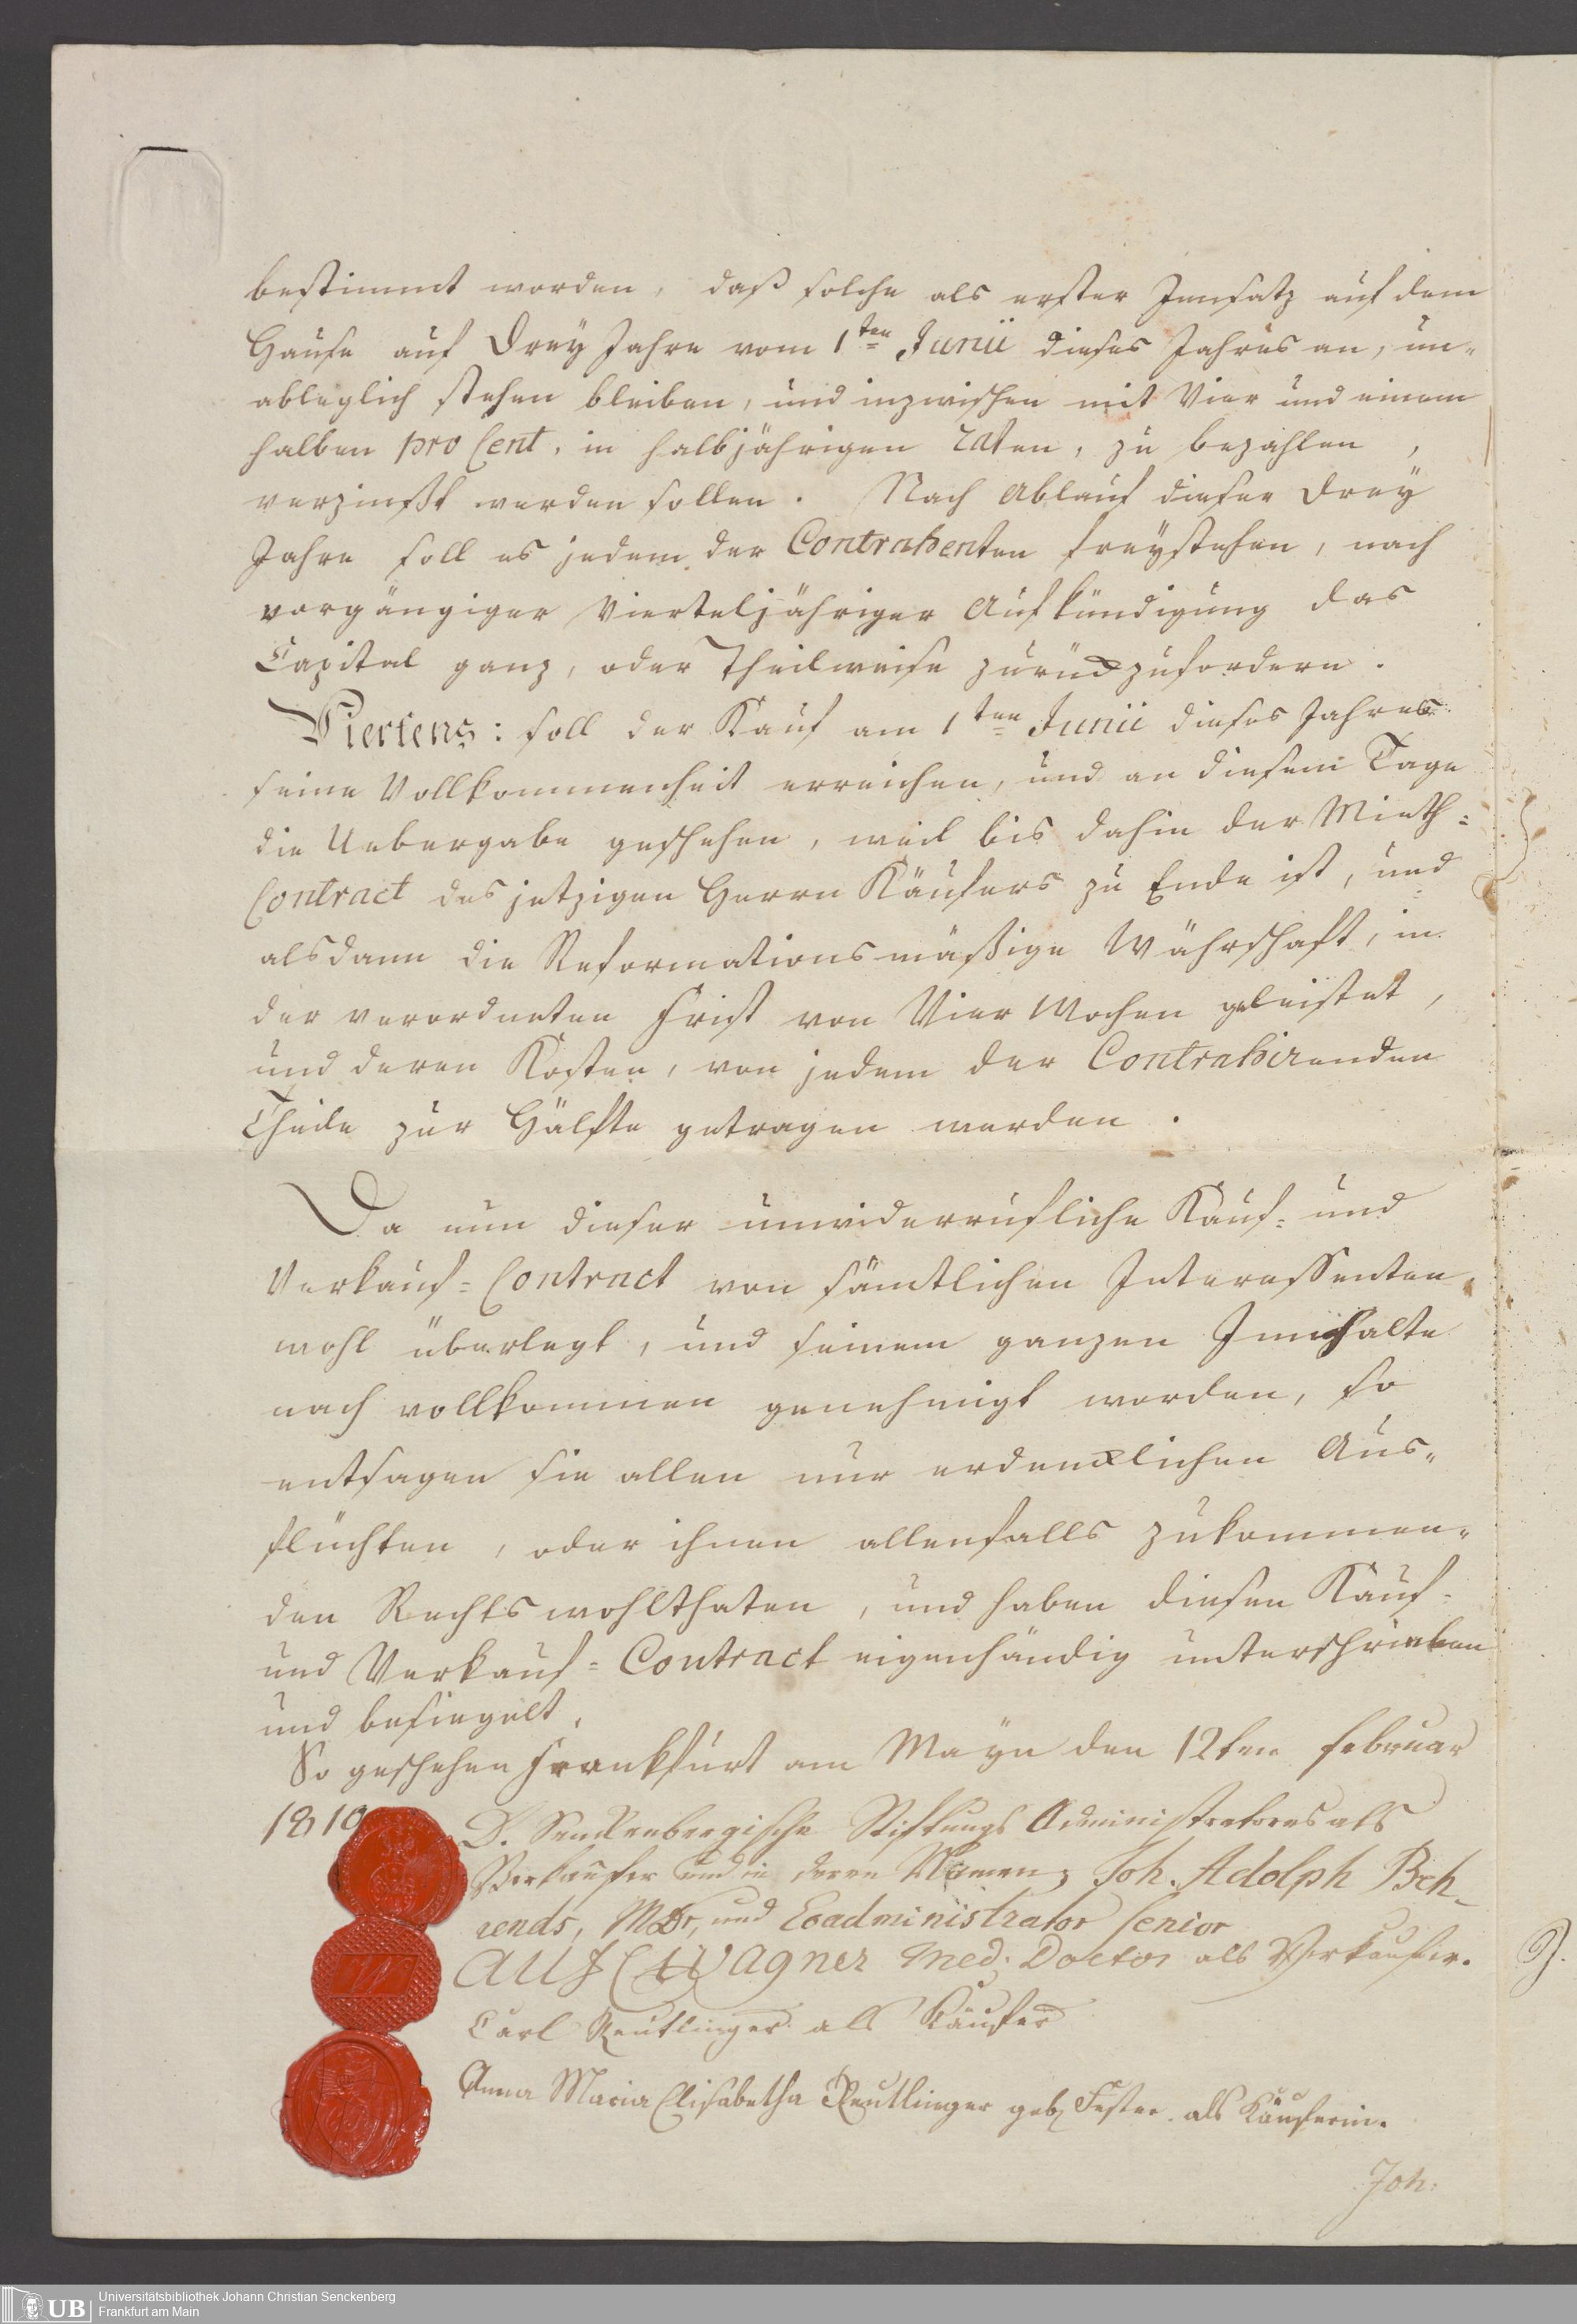 bestimmt worden, daß solche als erster Innsatz auf dem
Hause auf Drey Jahre vom 1ten Junii dieses Jahres an, un„
ableglich stehen bleiben, und inzwischen mit Vier und einem
halben pro Cent, in halbjährigen raten, zu bezahlen,
verzinßt werden sollen. Nach Ablauf dieser Drey
Jahre soll es jedem der Contrahenten freystehen, nach
vorgängiger Vierteljähriger Aufkündigung das
Capital ganz, oder Theilweise zurückzufordern.
Viertens: soll der Kauf am 1ten Junii dieses Jahres
seine Vollkommenheit erreichen, und an diesem Tage
die Uebergabe geschehen, weil bis dahin der Mieth=
Contract des jetzigen Herrn Käufers zu Ende ist, und
alsdann die Reformationsmäßige Währschaft, in
der verordneten Frist von Vier Wochen geleistet,
und deren Kosten, von jedem der Contrahirenden
Theile zur Hälfte getragen werden.
Da nun dieser unwiderrufliche Kauf= und
Verkauf=Contract von sämtlichen Interessenten
wohl überlegt, und seinem ganzen Innhalte
nach vollkommen genehmigt worden, so
entsagen sie allen nur erdencklichen Aus„
flüchten, oder ihnen allenfalls zukommen„
den Rechtswohlthaten, und haben diesen Kauf=
und Verkauf=Contract eigenhändig unterschrieben
und besiegelt.
So geschehen Frankfurt am Mayn den 12ten Februar
1810
D. Senckenbergische Stiftungs Administratores als
Verkäufer und in deren Namen, Joh. Adolph Beh-
rends, MDr, und Coadministrator Senior
Wagner Med: Doctor als Verkäufer.
Carl Reutlinger als Käufer
Anna Maria Elisabetha Reutlinger geb. Fester als Käuferin.
Joh:
UB
Universitätsbibliothek Johann Christian Senckenberg
Frankfurt am Main